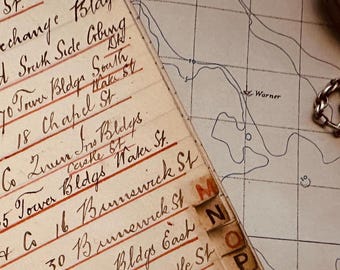 St.
Exchange Bldgs
South Side Coburg
Dk.
70 Tower Bldgs South
Water St
18 Chapel St
Co Bldgs
Castle St
Tower Bldgs Water St.
& Co 16 Brunswick St
30 Brunswick St
Bldgs East
St
M
N
O
P
St Warner